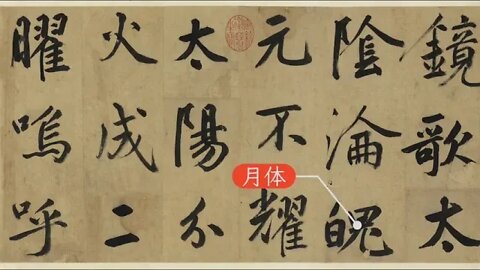 鏡歌太
陰淪魄
元不耀
太陽分
火成二
曜嗚呼
月体